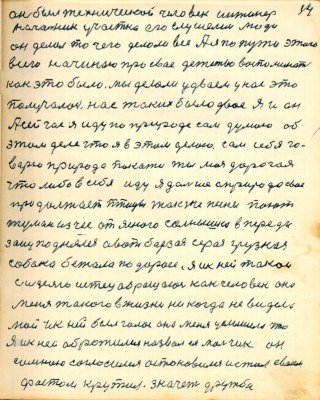 14
он был технический человек инженер
начатник участка его слушали люди
он делал то чего делом все А я по пути этого
всего начинаю про свае детство воспоминать
как это было. мы делали удваем у нас это
получалось, нас таких было двое Я и он
А сейчас я иду по природе сам думою об
этом деле что я в этом делаю. сам себя го-
варю природа покажи ты моя дорогая
что либо в себя иду я дальше природа свае
продолжает птицы также пени поют
туман исчез от ясного солнышка в переди
заиц поднялся а вот барзая серая грузная
собака бежала по дороге, я и к ней таким
сигналу обращался как человек она
меня такого в жизни никогда не видела
мой и к ней был голос она меня услышила что
Я и к ней оброжился назвал ея мальчик он
со мною согласился остоновился и стал своим
хвастом крутил. значет дружба